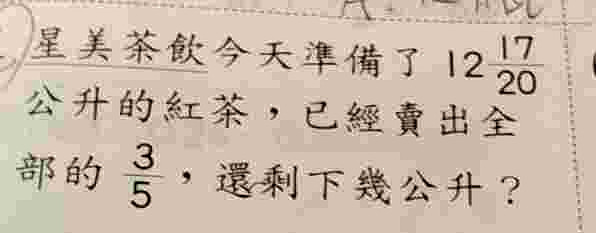 星美茶飲今天準備了 12 17/20
公升的紅茶，已經賣出全
部的 3/5，還剩下幾公升？